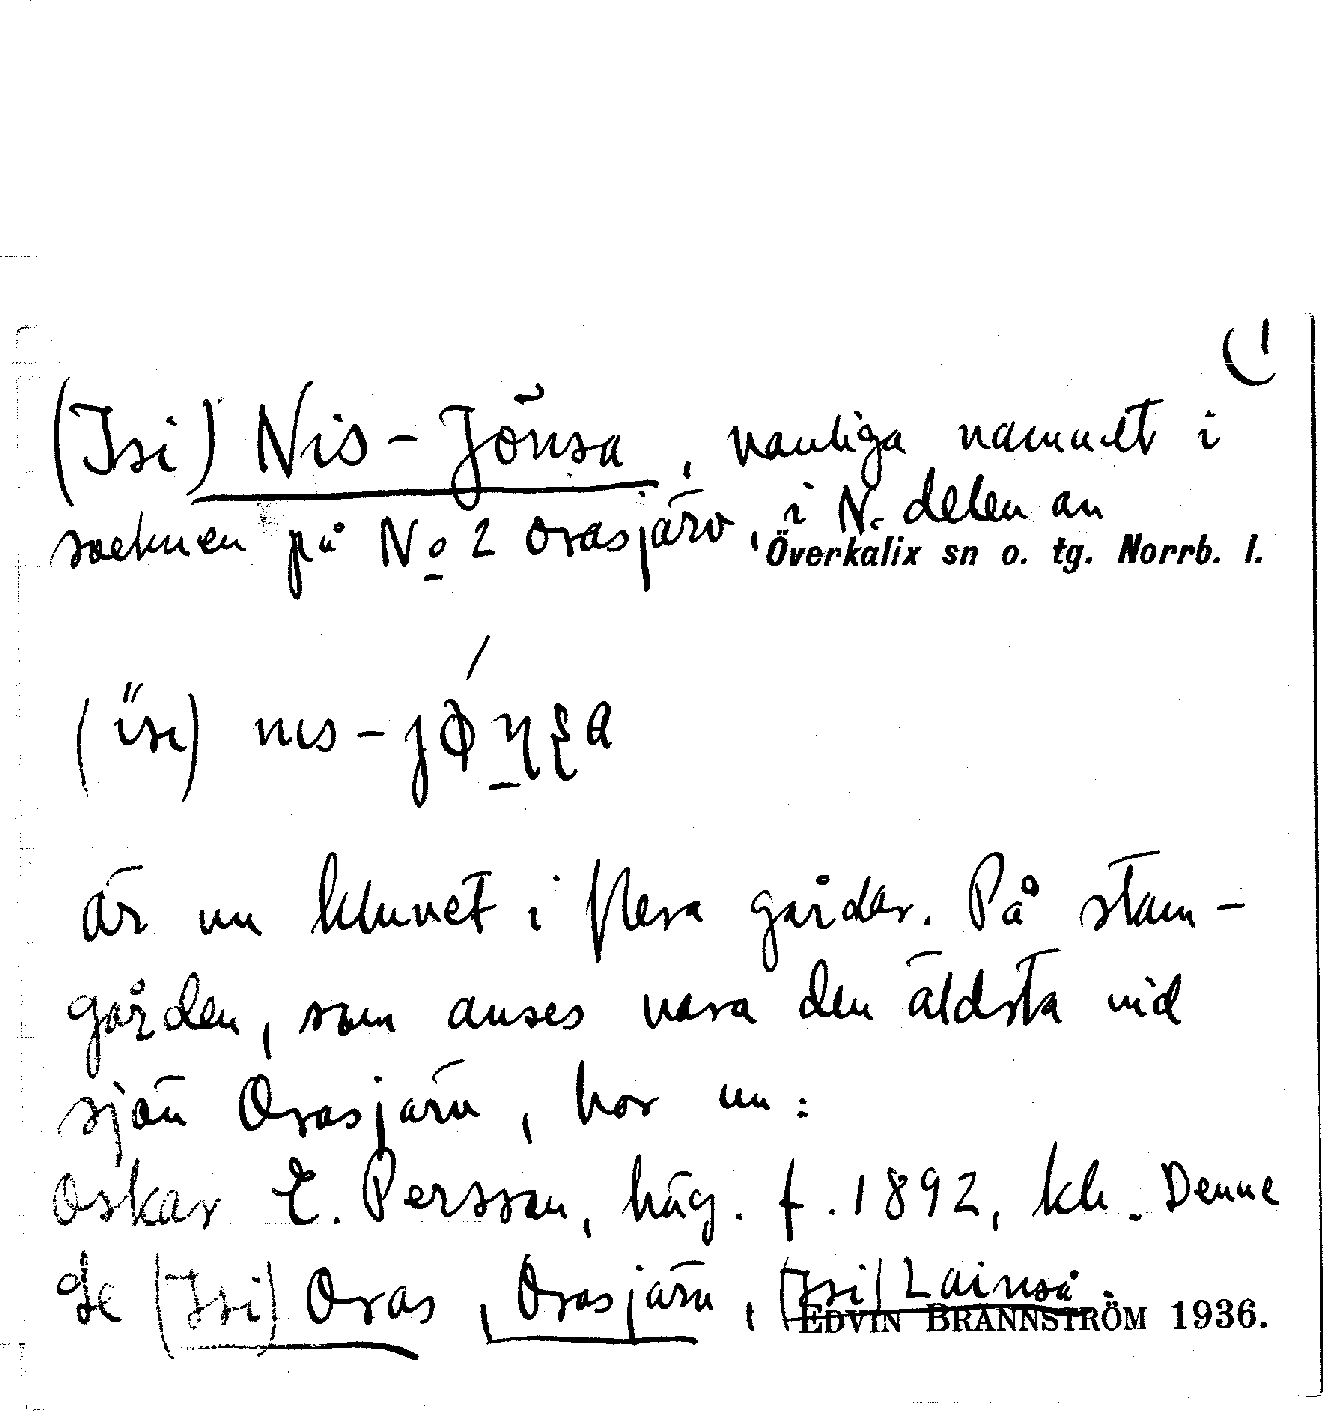 (1
(Isi) Nis-Jönsa, vanliga namnet i
socknen på No 2 Orasjärv, i N. delen av
Överkalix sn o. tg. Norrb. l.
(ı̋sı) nıs-jǿn̠ʂa
är nu kluvet i flera gårdar. På stam-
gården, som anses vara den äldsta vid
sjön Orasjärv, bor nu:
Oskar E. Persson, häg. f. 1892, kh. Denne
Se (Isi) Oras, Orasjärv, (Isi) Lainså.
EDVIN BRÄNNSTRÖM 1936.